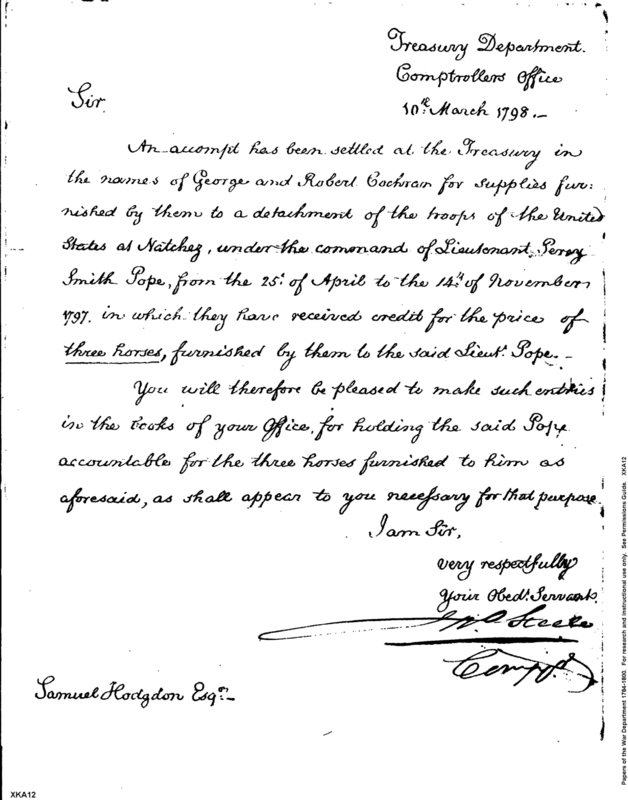 Treasury Department.
Comptrollers Office
10th March 1798.-
Sir.
An accompt has been settled at the Treasury in
the names of George and Robert Cochran for supplies fur:
nished by them to a detachment of the troops of the United
States at Natchez, under the comonand of Lieutenant, Percy
Smith Pope, from the 25t. of April to the 14th of November
1797. in which they have received credit for the price of
three horses, furnished by them to the said Lieut. Pope.-
You will therefore be pleased to make such entries
in the Books of your Office, for holding the said Pope
accountable for the three horses furnished to him as
aforesaid, as shall appear to you necessary for that purpose.
I am Sir,
very respectfully
Your Obedt. Servant.
Jno Steele
Compr.
Samuel Hodgdon Esqr.-
XKA12
Papers of the War Department 1784-1800. For research and instructional use only. See Permissions Guide. XKA12